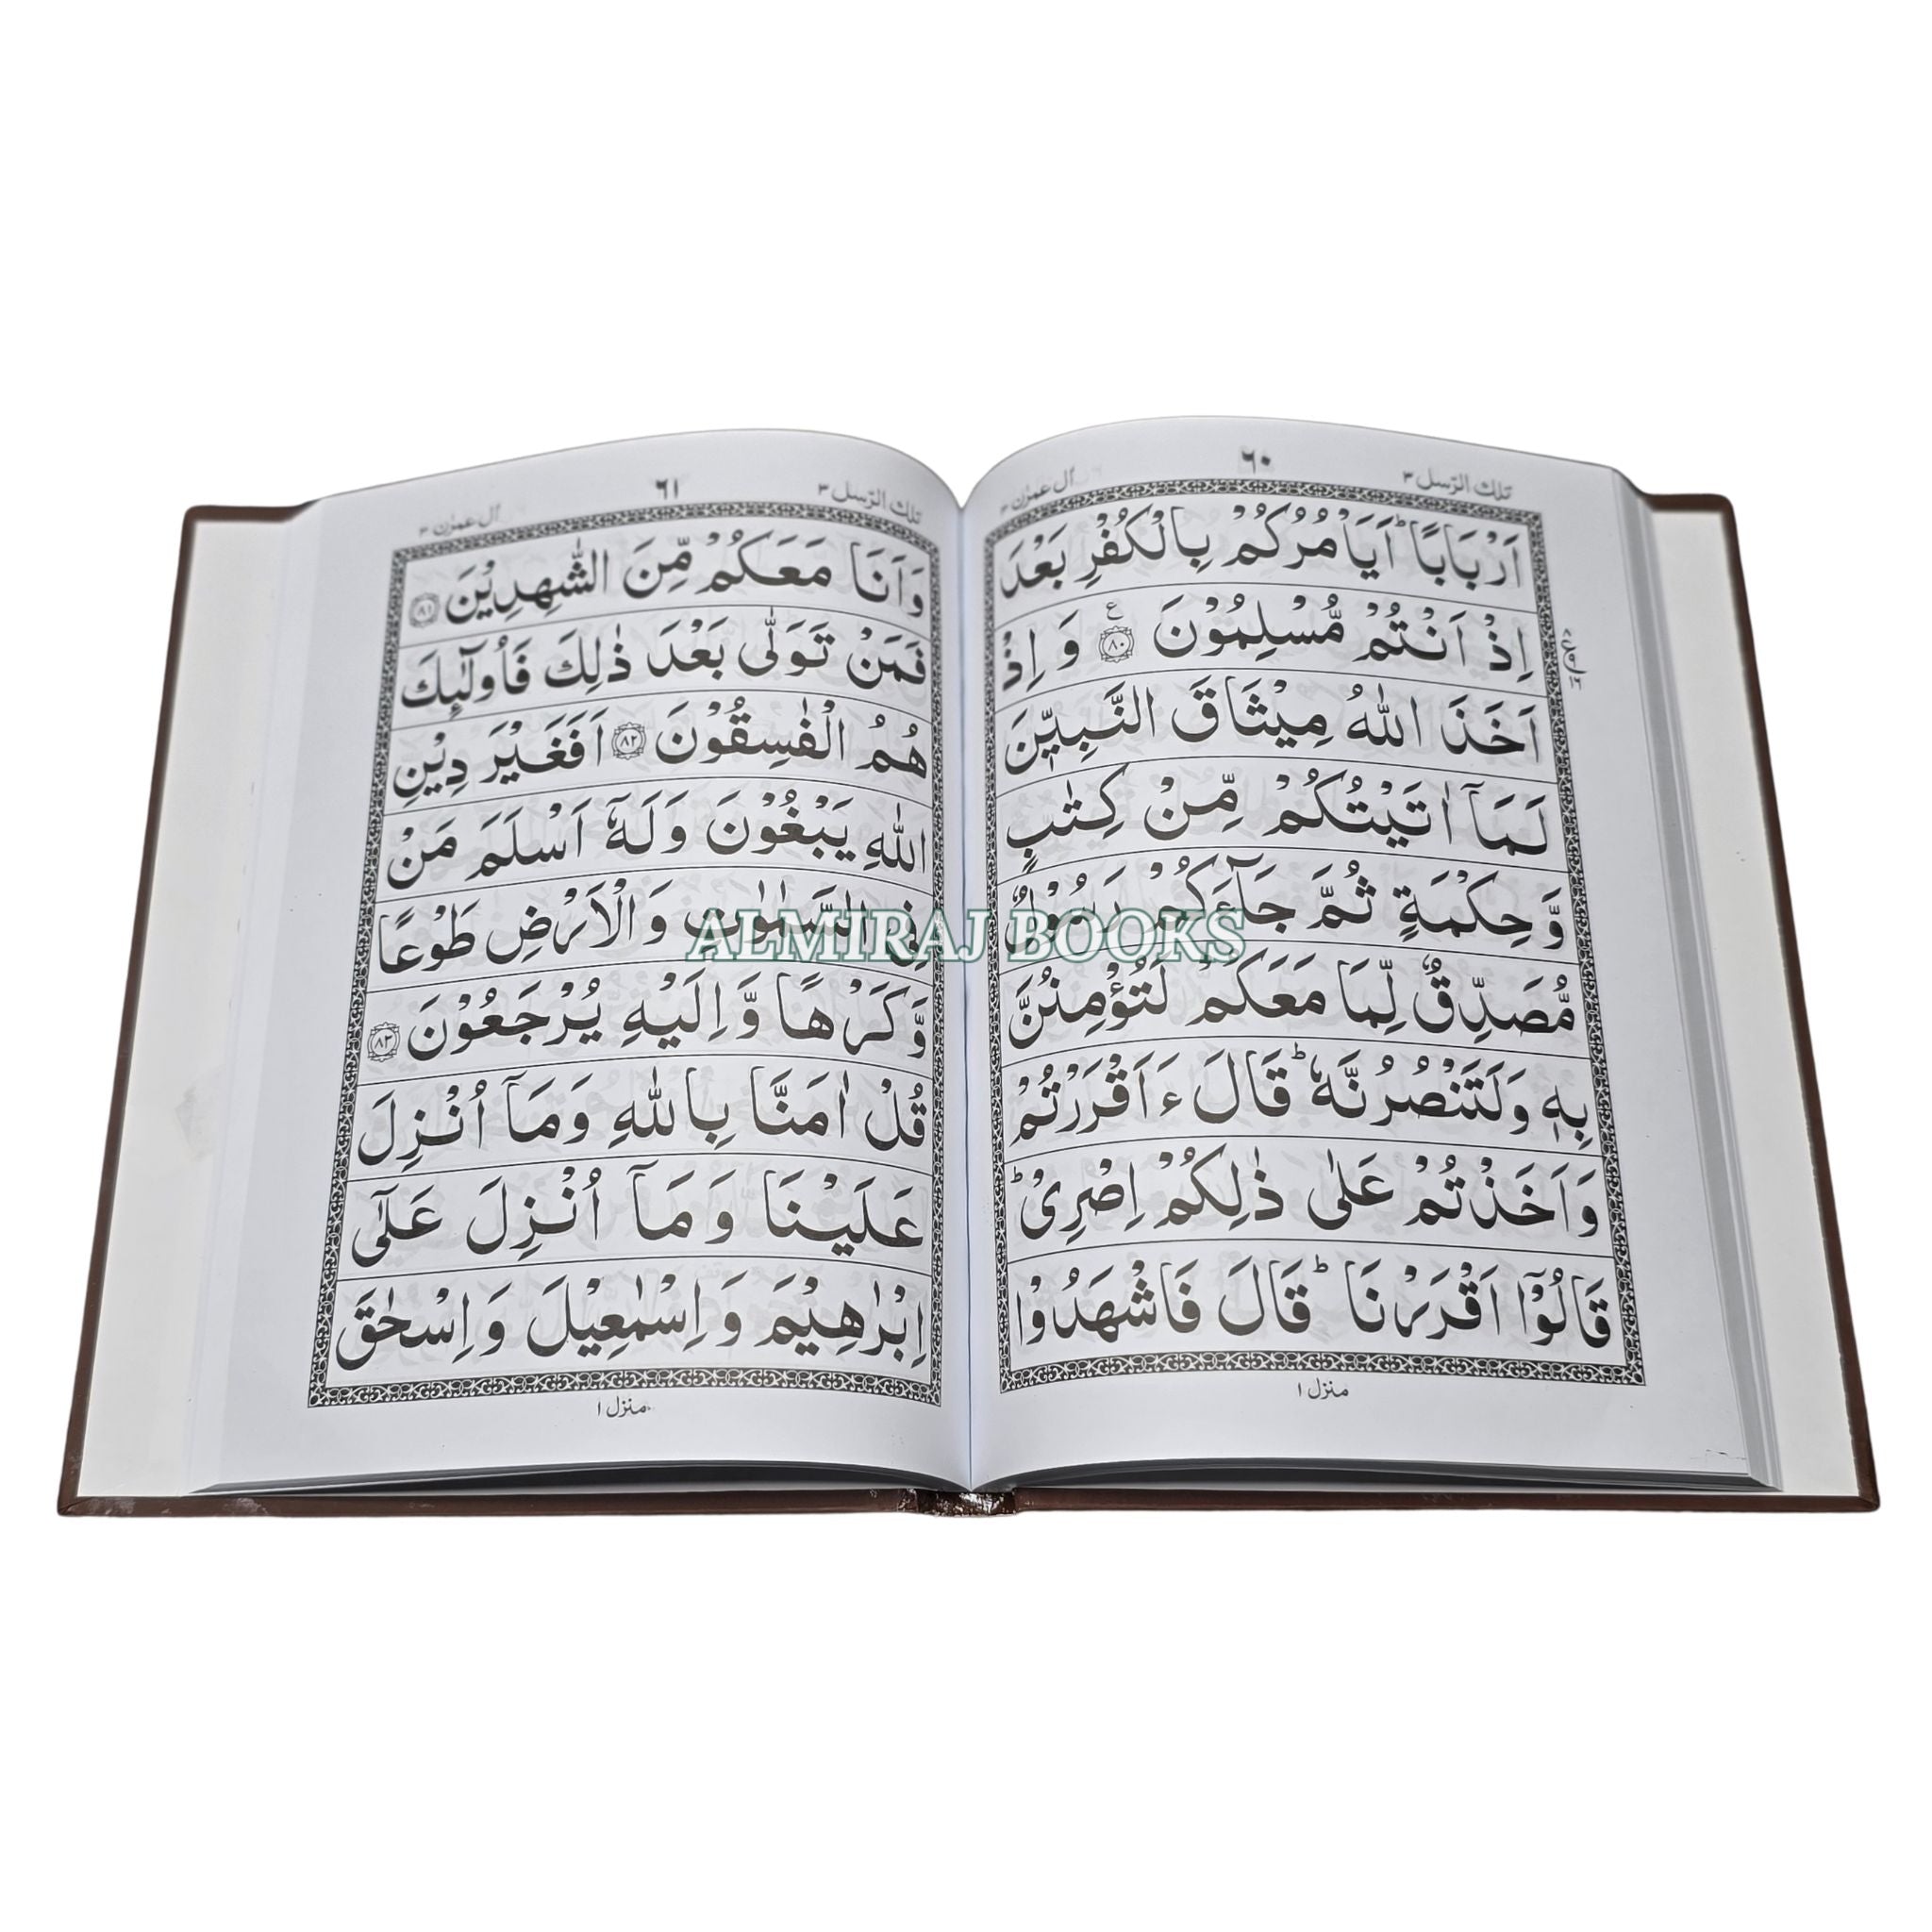 تلك الرسل ٣
٦٠
اٰل عمرٰن ٣
اَرْبَابًا ؕ اَيَاْمُرُكُمْ بِالْكُفْرِ بَعْدَ
اِذْ اَنْتُمْ مُّسْلِمُوْنَ ﴿٨٠﴾ ع وَ اِذْ
اَخَذَ اللّٰهُ مِيْثَاقَ النَّبِيّٖنَ
لَمَاۤ اٰتَيْتُكُمْ مِّنْ كِتٰبٍ
وَّحِكْمَةٍ ثُمَّ جَآءَكُمْ رَسُوْلٌ
مُّصَدِّقٌ لِّمَا مَعَكُمْ لَتُؤْمِنُنَّ
بِهٖ وَلَتَنْصُرُنَّهٗ ؕ قَالَ ءَاَقْرَرْتُمْ
وَاَخَذْتُمْ عَلٰى ذٰلِكُمْ اِصْرِيْ ؕ
قَالُوْۤا اَقْرَرْنَا ؕ قَالَ فَاشْهَدُوْا
منزل ١
تلك الرسل ٣
٦١
اٰل عمرٰن ٣
وَاَنَا مَعَكُمْ مِّنَ الشّٰهِدِيْنَ ﴿٨١﴾
فَمَنْ تَوَلّٰى بَعْدَ ذٰلِكَ فَاُولٰٓئِكَ
هُمُ الْفٰسِقُوْنَ ﴿٨٢﴾ اَفَغَيْرَ دِيْنِ
اللّٰهِ يَبْغُوْنَ وَلَهٗۤ اَسْلَمَ مَنْ
فِي السَّمٰوٰتِ وَالْاَرْضِ طَوْعًا
وَّكَرْهًا وَّاِلَيْهِ يُرْجَعُوْنَ ﴿٨٣﴾
قُلْ اٰمَنَّا بِاللّٰهِ وَمَاۤ اُنْزِلَ
عَلَيْنَا وَمَاۤ اُنْزِلَ عَلٰٓى
اِبْرٰهِيْمَ وَاِسْمٰعِيْلَ وَاِسْحٰقَ
منزل ١
ALMIRAJ BOOKS